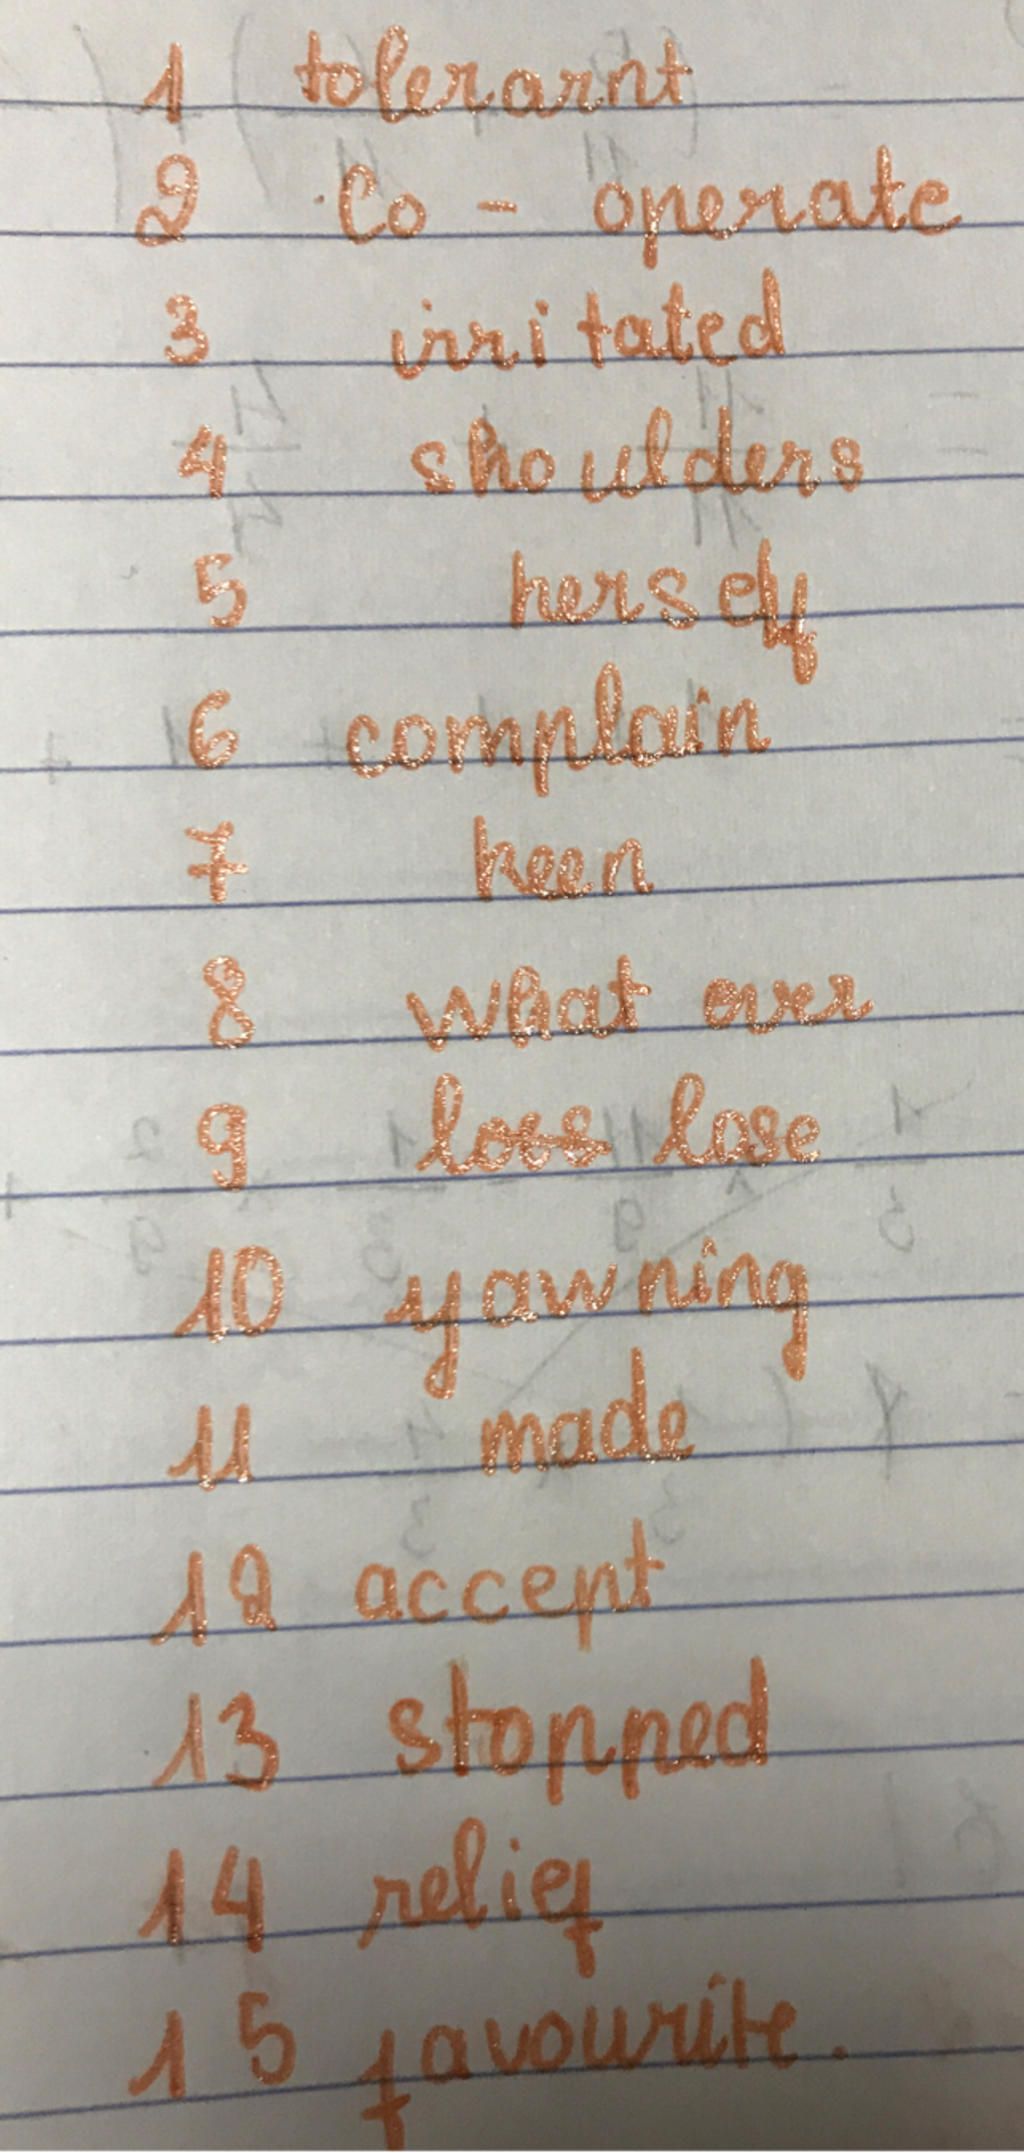 1 tolerarnt
2 Co - operate
3 irritated
4 shoulders
5 herself
6 complain
7 keen
8 what over
9 loss lose
10 yawning
11 made
12 accept
13 stopped
14 relief
15 favourite.